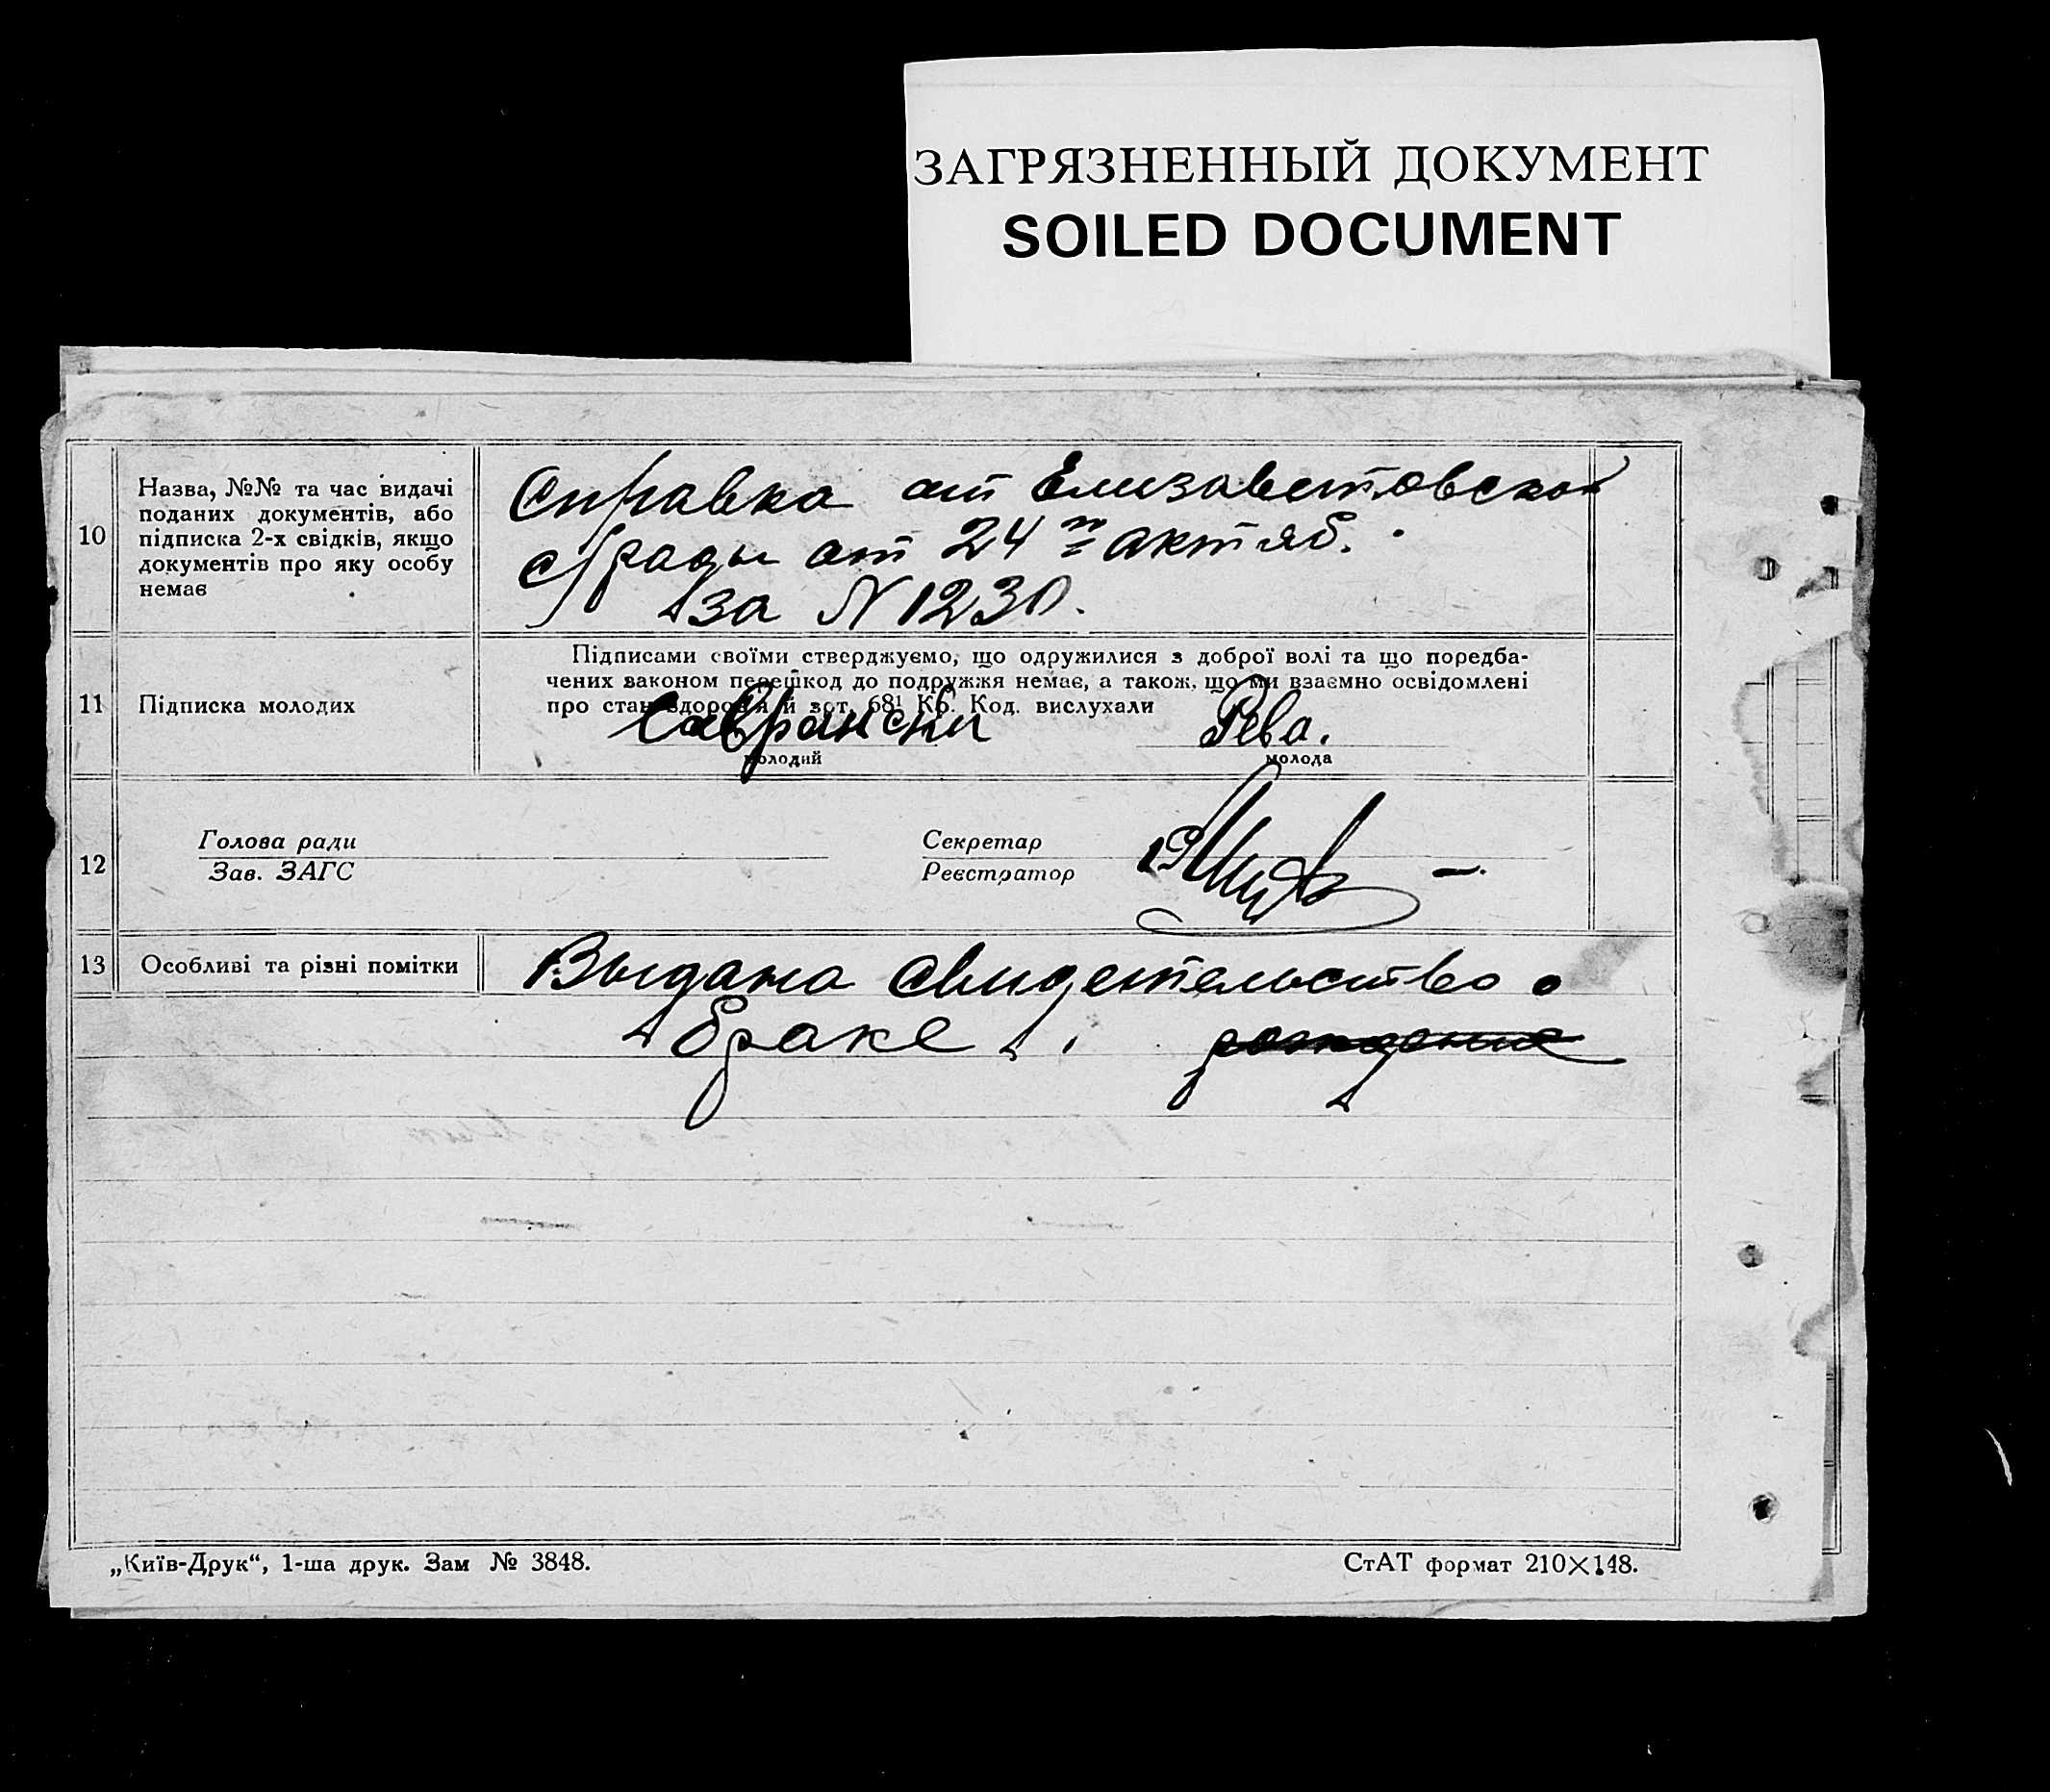 ЗАГРЯЗНЕННЫЙ ДОКУМЕНТ
SOILED DOCUMENT
10
Назва, №№ та час видачі
поданих документів, або
підписка 2-х свідків, якщо
документів про яку особу
немає
Справка от Елизаветовской
с/рады от 24 октяб.
за N 1230.
11
Підписка молодих
Підписами своїми стверджуємо, що одружилися з доброї волі та що передба-
чених законом перешкод до подружжя немає, а також, що ми взаємно освідомлені
про стан здоров'я й 68¹ Кб. Код. вислухали
Саврански
Рева.
молодий
молода
12
Голова ради
Зав. ЗАГС
Секретар
Реєстратор
13
Особливі та різні помітки
Выдано свидетельство о
браке рождение
„Київ-Друк“, 1-ша друк. Зам № 3848.
СтАТ формат 210×148.